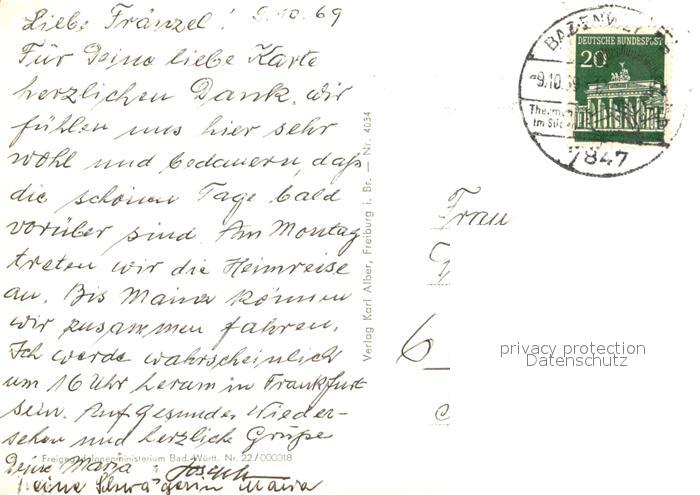 Liebe Fränzel! 9.10.69
Für Deine liebe Karte
herzlichen Dank, wir
fühlen uns hier sehr
wohl und bedauern, daß
die schönen Tage bald
vorüber sind. Am Montag
treten wir die Heimreise
an. Bis Mainz können
wir zusammen fahren.
Ich werde wahrscheinlich
um 16 Uhr herum in Frankfurt
sein. Auf gesundes Wieder-
sehen und herzliche Grüße
Freigegeb. Innenministerium Bad.-Württ. Nr. 22/000018
Deine Maria Joseph
Deine Schwägerin Maria
Verlag Karl Alber, Freiburg i. Br. — Nr. 4034
BADENWEILER
9.10.69
Thermal
im Süd
7847
DEUTSCHE BUNDESPOST
20
Frau
6
privacy protection
Datenschutz